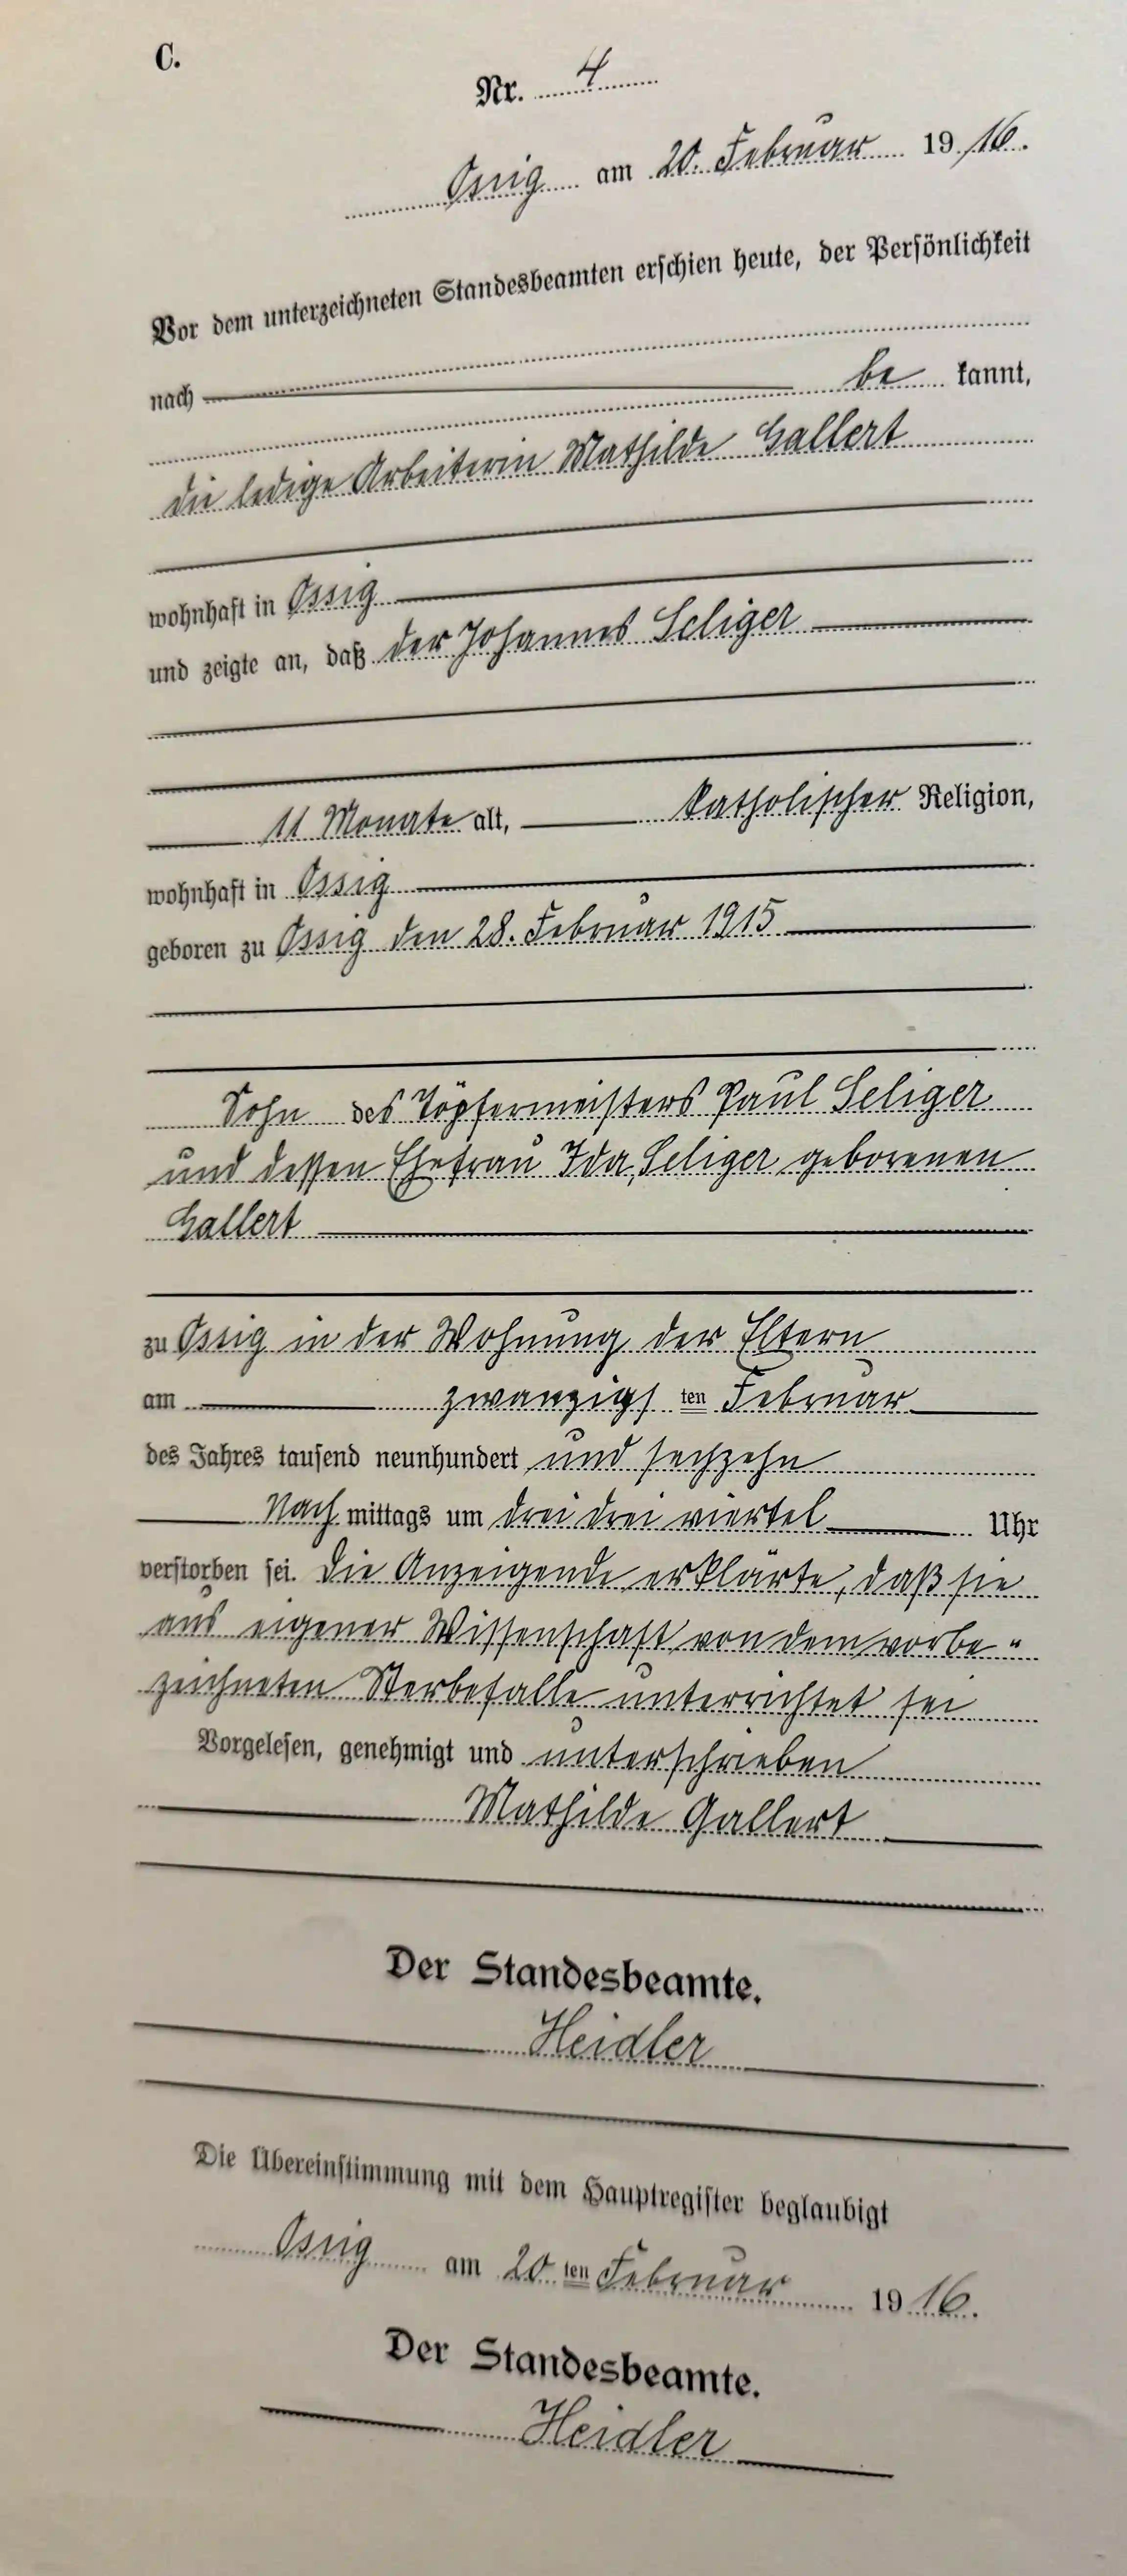 C.
Nr. 4
Ossig am 20. Februar 1916.
Vor dem unterzeichneten Standesbeamten erschien heute, der Persönlichkeit
nach be kannt,
die ledige Arbeiterin Mathilde Gallert
wohnhaft in Ossig
und zeigte an, daß der Johannes Seliger
11 Monate alt, katholischer Religion,
wohnhaft in Ossig
geboren zu Ossig den 28. Februar 1915
Sohn des Töpfermeisters Paul Seliger
und dessen Ehefrau Ida, Seliger geborenen
Gallert
zu Ossig in der Wohnung der Eltern
am zwanzigs ten Februar
des Jahres tausend neunhundert und sechzehn
Nach mittags um drei drei viertel Uhr
verstorben sei. Die Anzeigende erklärte, daß sie
aus eigener Wissenschaft von dem vorbe-
zeichneten Sterbefalle unterrichtet sei
Vorgelesen, genehmigt und unterschrieben
Mathilde Gallert
Der Standesbeamte.
Heidler
Die Übereinstimmung mit dem Hauptregister beglaubigt
Ossig am 20 ten Februar 1916.
Der Standesbeamte.
Heidler